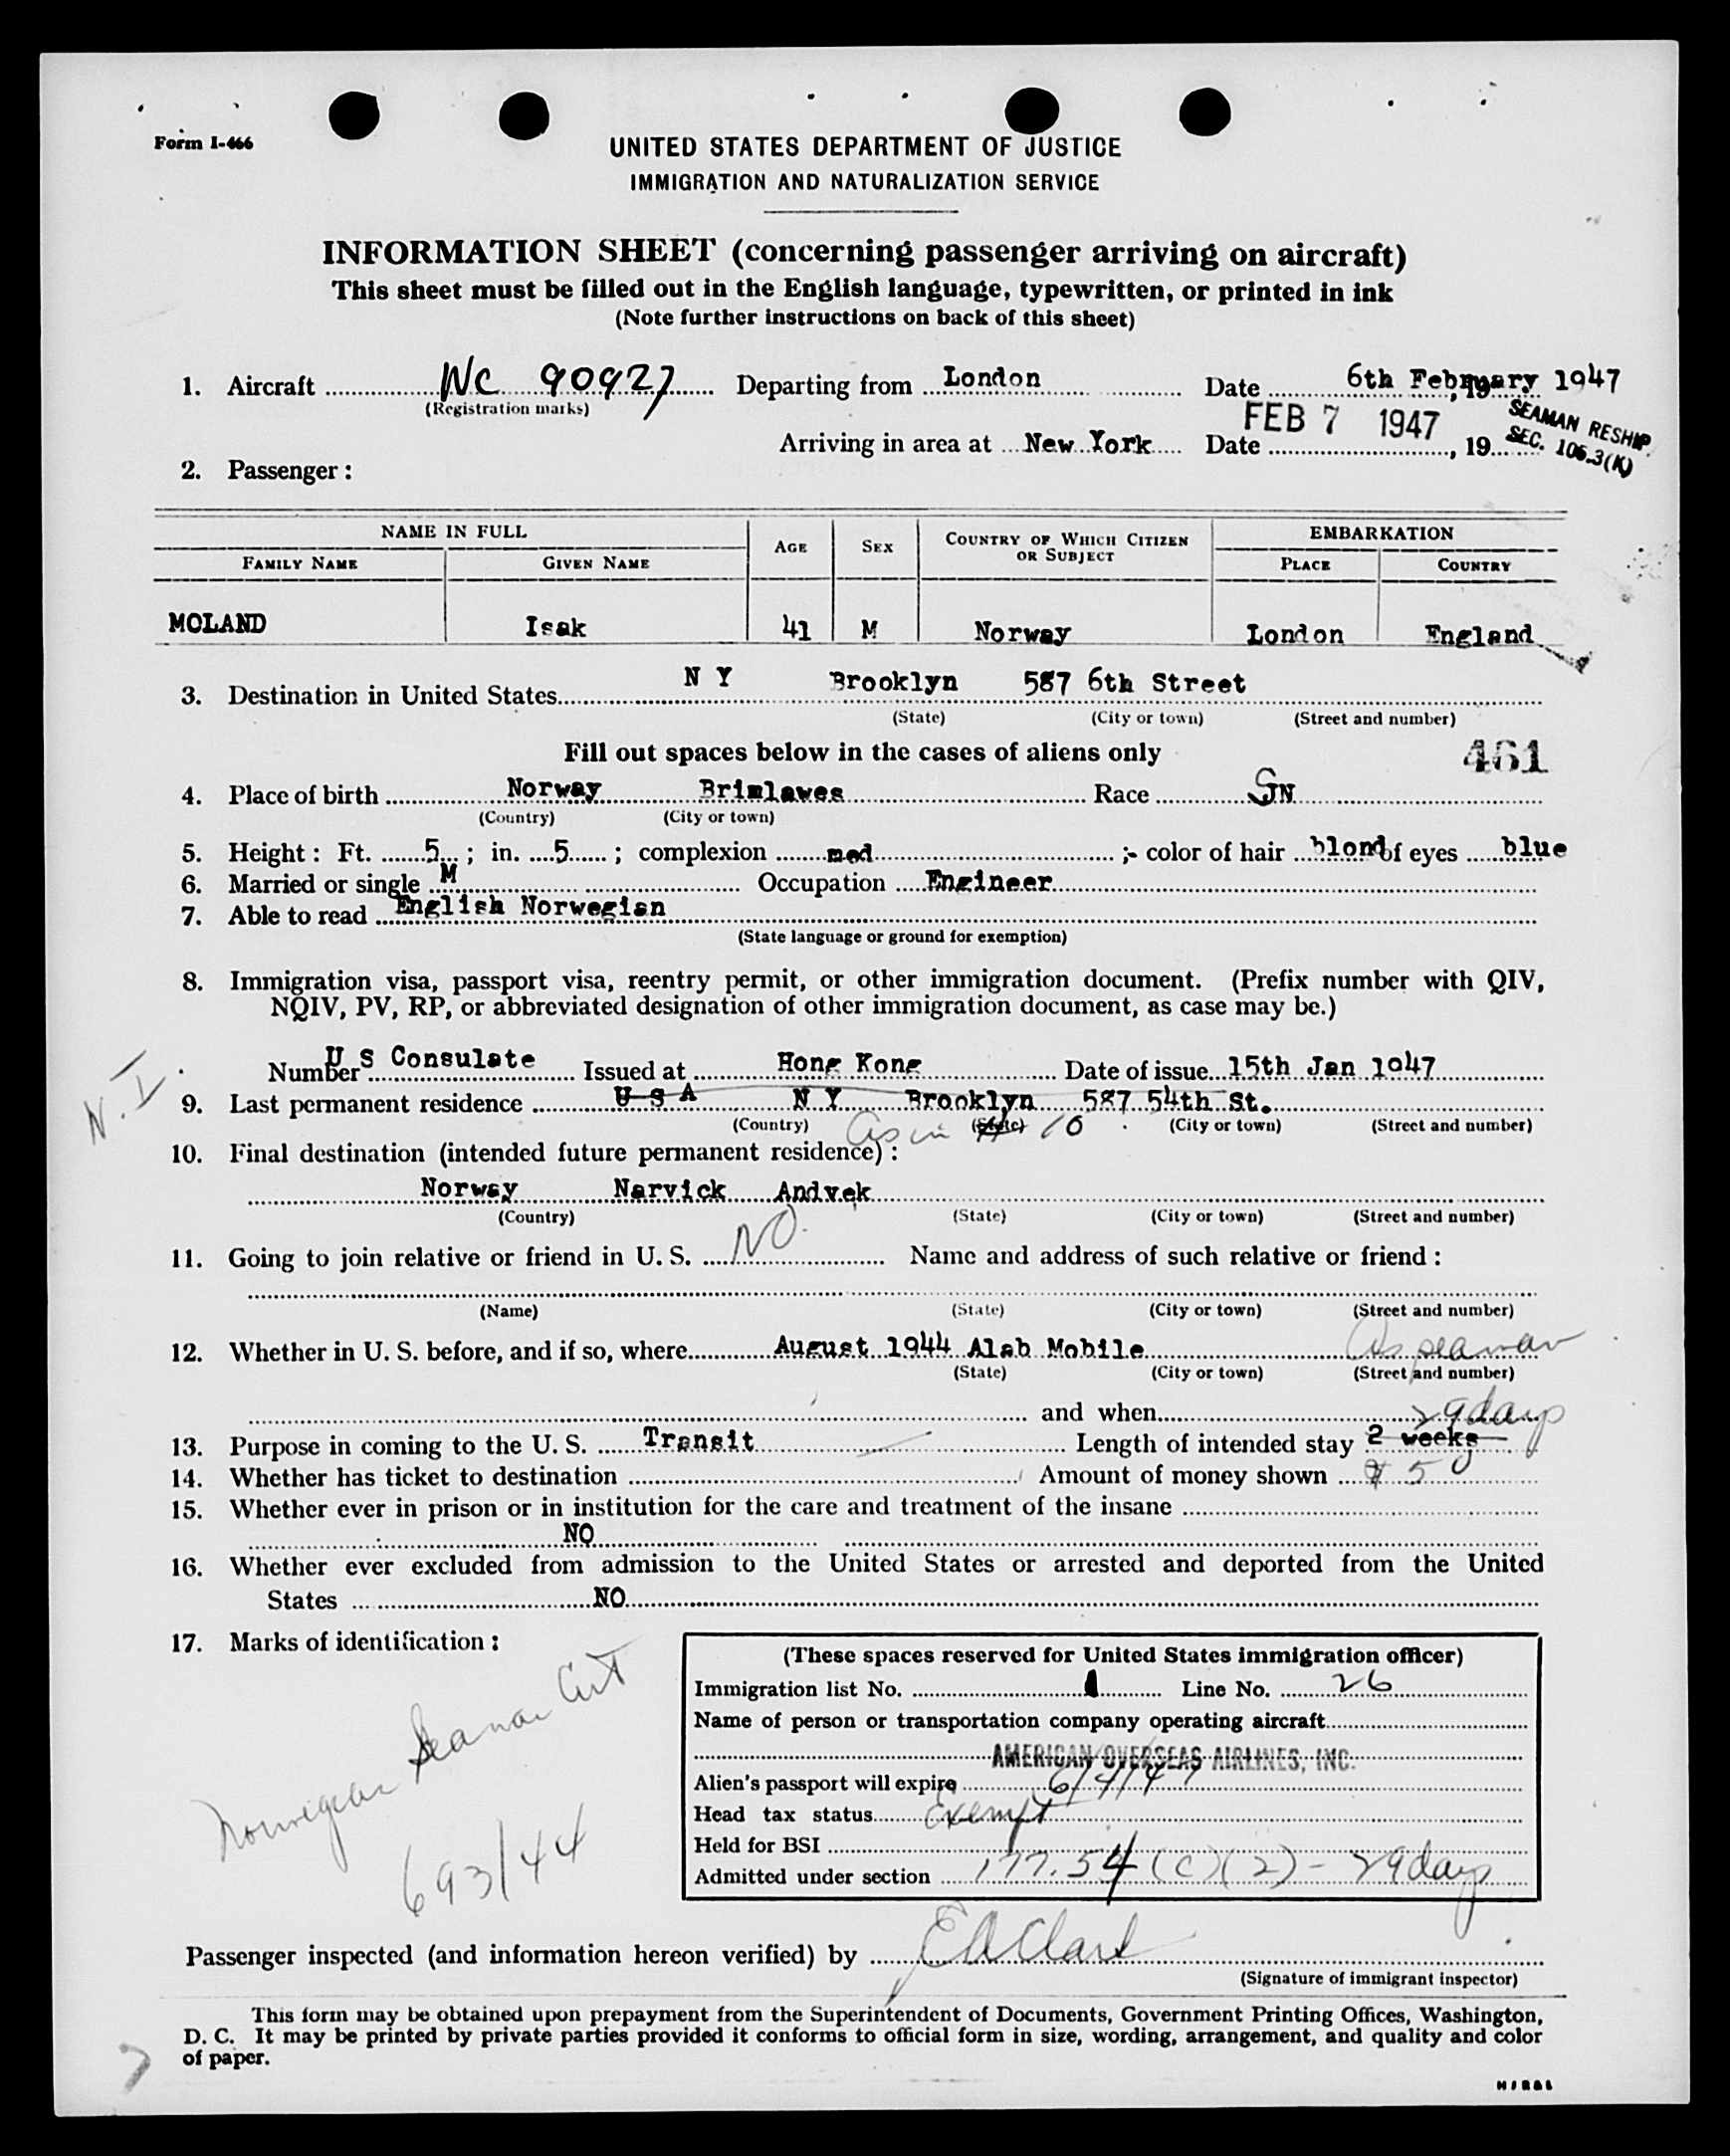 Form I-466
UNITED STATES DEPARTMENT OF JUSTICE
IMMIGRATION AND NATURALIZATION SERVICE
INFORMATION SHEET (concerning passenger arriving on aircraft)
This sheet must be filled out in the English language, typewritten, or printed in ink
(Note further instructions on back of this sheet)
1. Aircraft NC 90927 Departing from London Date 6th February 1947, 19
(Registration marks)
FEB 7 1947 SEAMAN RESHIP.
Arriving in area at New York Date , 19 SEC. 105.3(K)
2. Passenger:
NAME IN FULL AGE SEX COUNTRY OF WHICH CITIZEN OR SUBJECT EMBARKATION
FAMILY NAME GIVEN NAME PLACE COUNTRY
MOLAND Isak 41 M Norway London England
3. Destination in United States N Y Brooklyn 587 6th Street
(State) (City or town) (Street and number)
Fill out spaces below in the cases of aliens only 461
4. Place of birth Norway Brimlawes Race SN
(Country) (City or town)
5. Height: Ft. 5; in. 5; complexion med; color of hair blond of eyes blue
6. Married or single M Occupation Engineer
7. Able to read English Norwegian
(State language or ground for exemption)
8. Immigration visa, passport visa, reentry permit, or other immigration document. (Prefix number with QIV,
NQIV, PV, RP, or abbreviated designation of other immigration document, as case may be.)
Number U S Consulate Issued at Hong Kong Date of issue 15th Jan 1947
N.I
9. Last permanent residence U S A N Y Brooklyn 587 54th St.
(Country) (State) (City or town) (Street and number)
As in # 10
10. Final destination (intended future permanent residence):
Norway Narvick Andvek
(Country) (State) (City or town) (Street and number)
11. Going to join relative or friend in U. S. NO Name and address of such relative or friend:
(Name) (State) (City or town) (Street and number)
12. Whether in U. S. before, and if so, where August 1944 Alab Mobile As seaman
(State) (City or town) (Street and number)
and when 29 days
13. Purpose in coming to the U. S. Transit Length of intended stay 2 weeks
14. Whether has ticket to destination Amount of money shown $ 5
15. Whether ever in prison or in institution for the care and treatment of the insane
NO
16. Whether ever excluded from admission to the United States or arrested and deported from the United
States NO
17. Marks of identification:
Norwegian Seaman Cert
693/44
(These spaces reserved for United States immigration officer)
Immigration list No. 1 Line No. 26
Name of person or transportation company operating aircraft
AMERICAN OVERSEAS AIRLINES, INC.
Alien's passport will expire 6/7/47
Head tax status Exempt
Held for BSI
Admitted under section 177.54 (C)(2) - 29 days
Passenger inspected (and information hereon verified) by E A Clark
(Signature of immigrant inspector)
This form may be obtained upon prepayment from the Superintendent of Documents, Government Printing Offices, Washington,
D. C. It may be printed by private parties provided it conforms to official form in size, wording, arrangement, and quality and color
of paper.